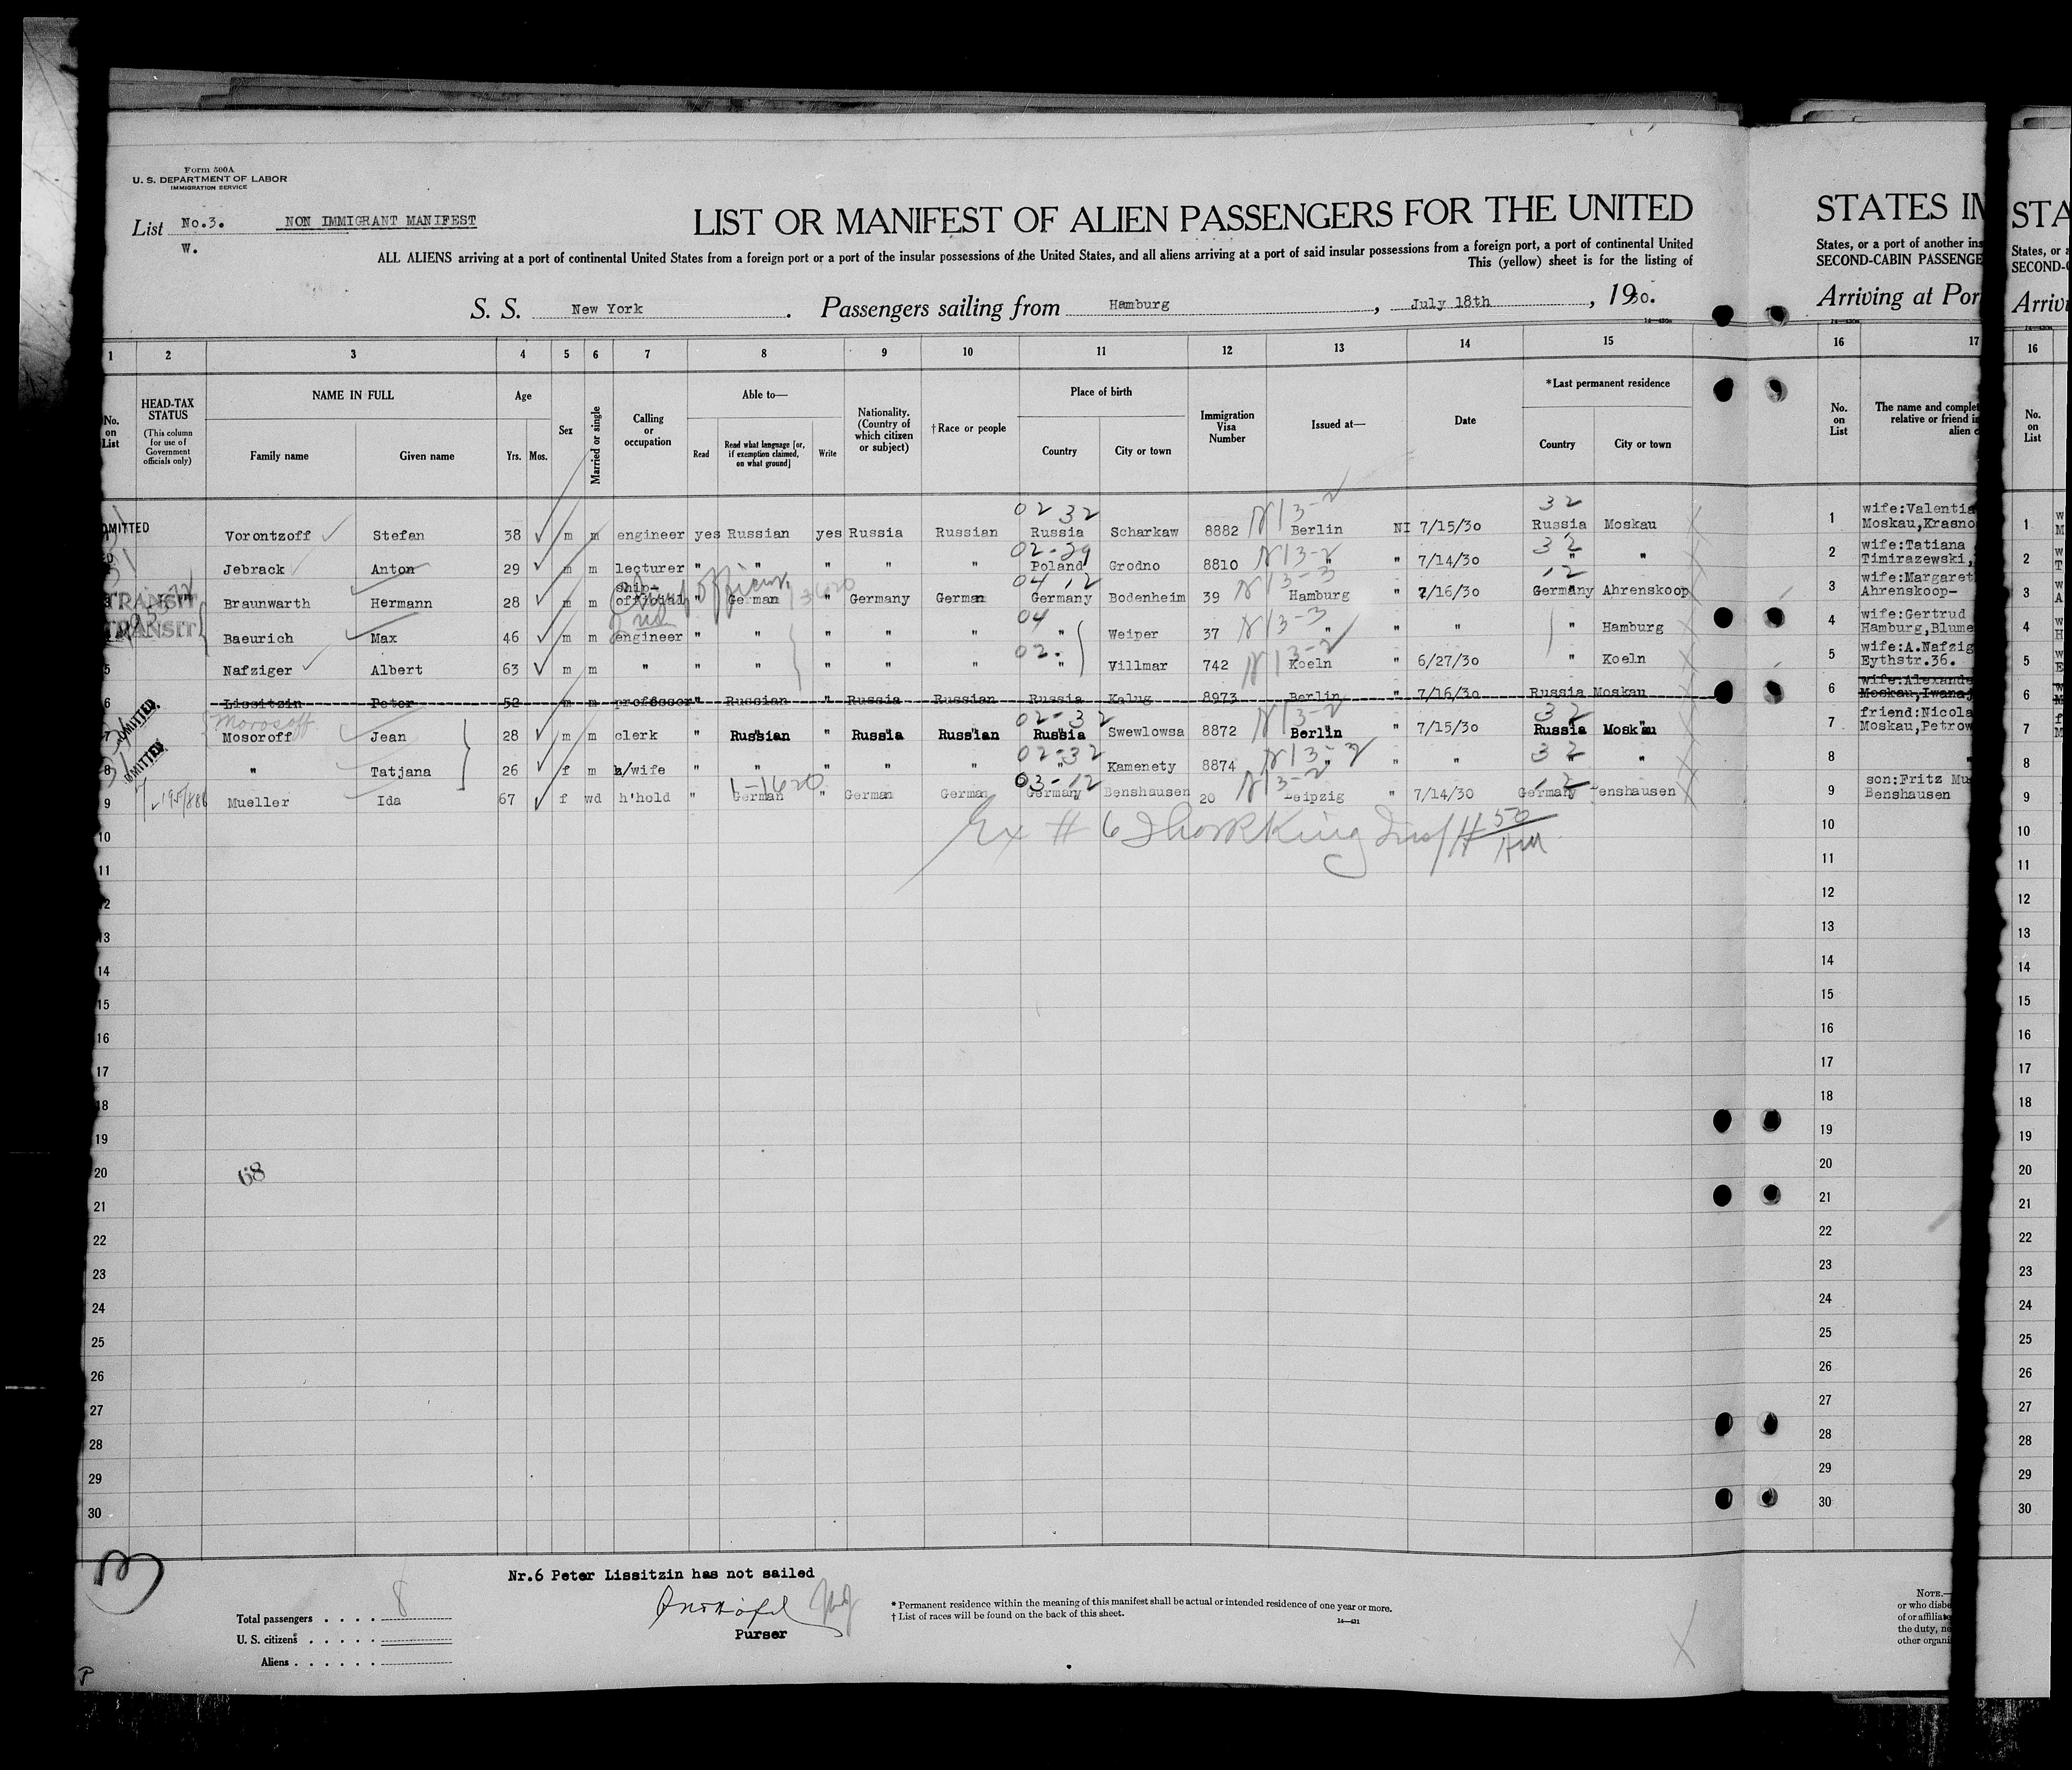 Form 500A
U. S. DEPARTMENT OF LABOR
IMMIGRATION SERVICE
List No.3. NON IMMIGRANT MANIFEST
w.
LIST OR MANIFEST OF ALIEN PASSENGERS FOR THE UNITED
ALL ALIENS arriving at a port of continental United States from a foreign port or a port of the insular possessions of the United States, and all aliens arriving at a port of said insular possessions from a foreign port, a port of continental United
This (yellow) sheet is for the listing of
S. S. New York. Passengers sailing from Hamburg, July 18th, 1930.
STATES IN
States, or a port of another ins
SECOND-CABIN PASSENGE
Arriving at Por
STA
States, or a
SECOND-C
Arrivi
1 2 3 4 5 6 7 8 9 10 11 12 13 14 15 16 17 16
No. on List
HEAD-TAX STATUS
(This column for use of Government officials only)
NAME IN FULL
Family name Given name
Age
Yrs. Mos.
Sex
Married or single
Calling or occupation
Able to—
Read
Read what language [or, if exemption claimed, on what ground]
Write
Nationality. (Country of which citizen or subject)
†Race or people
Place of birth
Country City or town
Immigration Visa Number
Issued at—
Date
*Last permanent residence
Country City or town
No. on List
The name and complet
relative or friend i
alien c
No. on List
02 32 32
MITTED Vorontzoff Stefan 38 m m engineer yes Russian yes Russia Russian Russia Scharkaw 8882 Berlin NI 7/15/30 Russia Moskau
02-29 32
Jebrack Anton 29 m m lecturer " " " " " Poland Grodno 8810 " " 7/14/30 " "
04 12 12
TRANSIT 3 Braunwarth Hermann 28 m m ship-official " German " Germany German Germany Bodenheim 39 Hamburg " 7/16/30 Germany Ahrenskoop
04
TRANSIT Baeurich Max 46 m m engineer " " " " " " Weiper 37 " " " " Hamburg
02-
5 Nafziger Albert 63 m m " " " " " " " Villmar 742 Koeln " 6/27/30 " Koeln
6 Lissitzin Peter 52 m m professor " Russian " Russia Russian Russia Kalug 8973 Berlin " 7/16/30 Russia Moskau
Morosoff 02-32 32
MITTED. 7 Mosoroff Jean 28 m m clerk " Russian " Russia Russian Russia Swewlowsa 8872 Berlin " 7/15/30 Russia Moskau
02-32 32
MITTED. 8 " Tatjana 26 f m h/wife " " " " " " Kamenety 8874 " " " " "
03-12 12
9 Mueller Ida 67 f wd h'hold " German " German German Germany Benshausen 20 Leipzig " 7/14/30 Germany enshausen
Ex # 6
10
11
12
13
14
15
16
17
18
19
20
68
21
22
23
24
25
26
27
28
29
30
1 wife:Valentia
Moskau,Krasno
2 wife:Tatiana
Timirazewski,
3 wife:Margaret
Ahrenskoop-
4 wife:Gertrud
Hamburg,Blume
5 wife:A.Nafzig
Eythstr.36.
6 wife:Alexande
Moskau,Iwana
7 friend:Nicola
Moskau,Petrow
8 "
9 son:Fritz Mu
Benshausen
10
11
12
13
14
15
16
17
18
19
20
21
22
23
24
25
26
27
28
29
30
1
2
3
4
5
6
7
8
9
10
11
12
13
14
15
16
17
18
19
20
21
22
23
24
25
26
27
28
29
30
Nr.6 Peter Lissitzin has not sailed
Purser
Total passengers . . . . 8
U. S. citizens . . . . .
Aliens . . . . . .
* Permanent residence within the meaning of this manifest shall be actual or intended residence of one year or more.
† List of races will be found on the back of this sheet.
14—431
NOTE.—
or who disbe
of or affiliate
the duty, ne
other organi
P